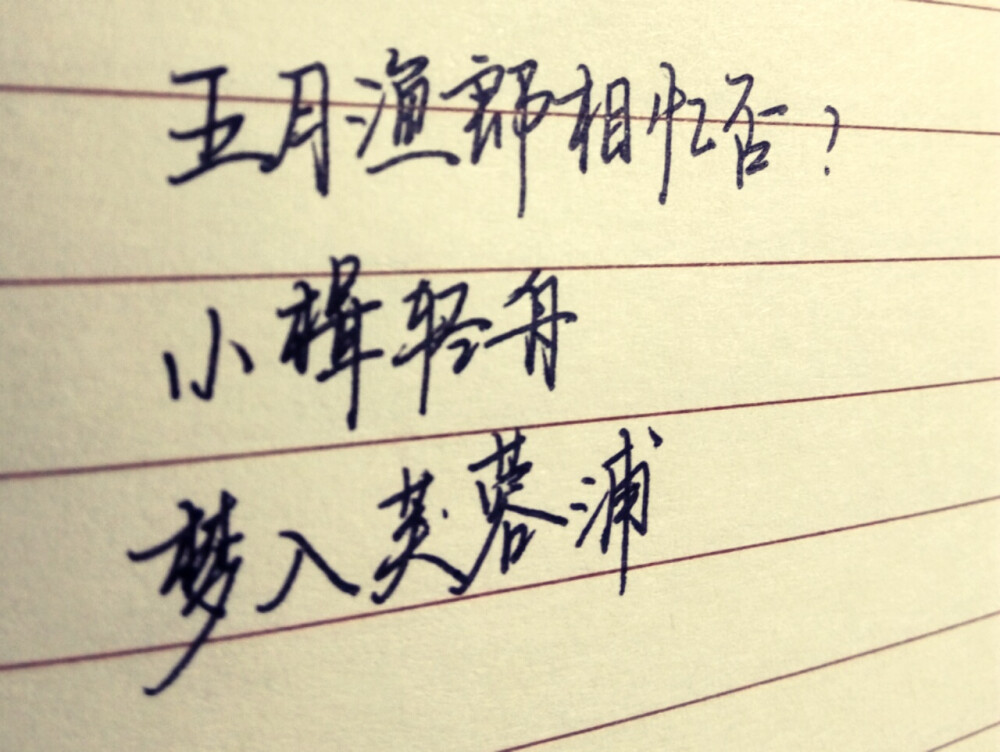 五月渔郎相忆否？
小楫轻舟
梦入芙蓉浦